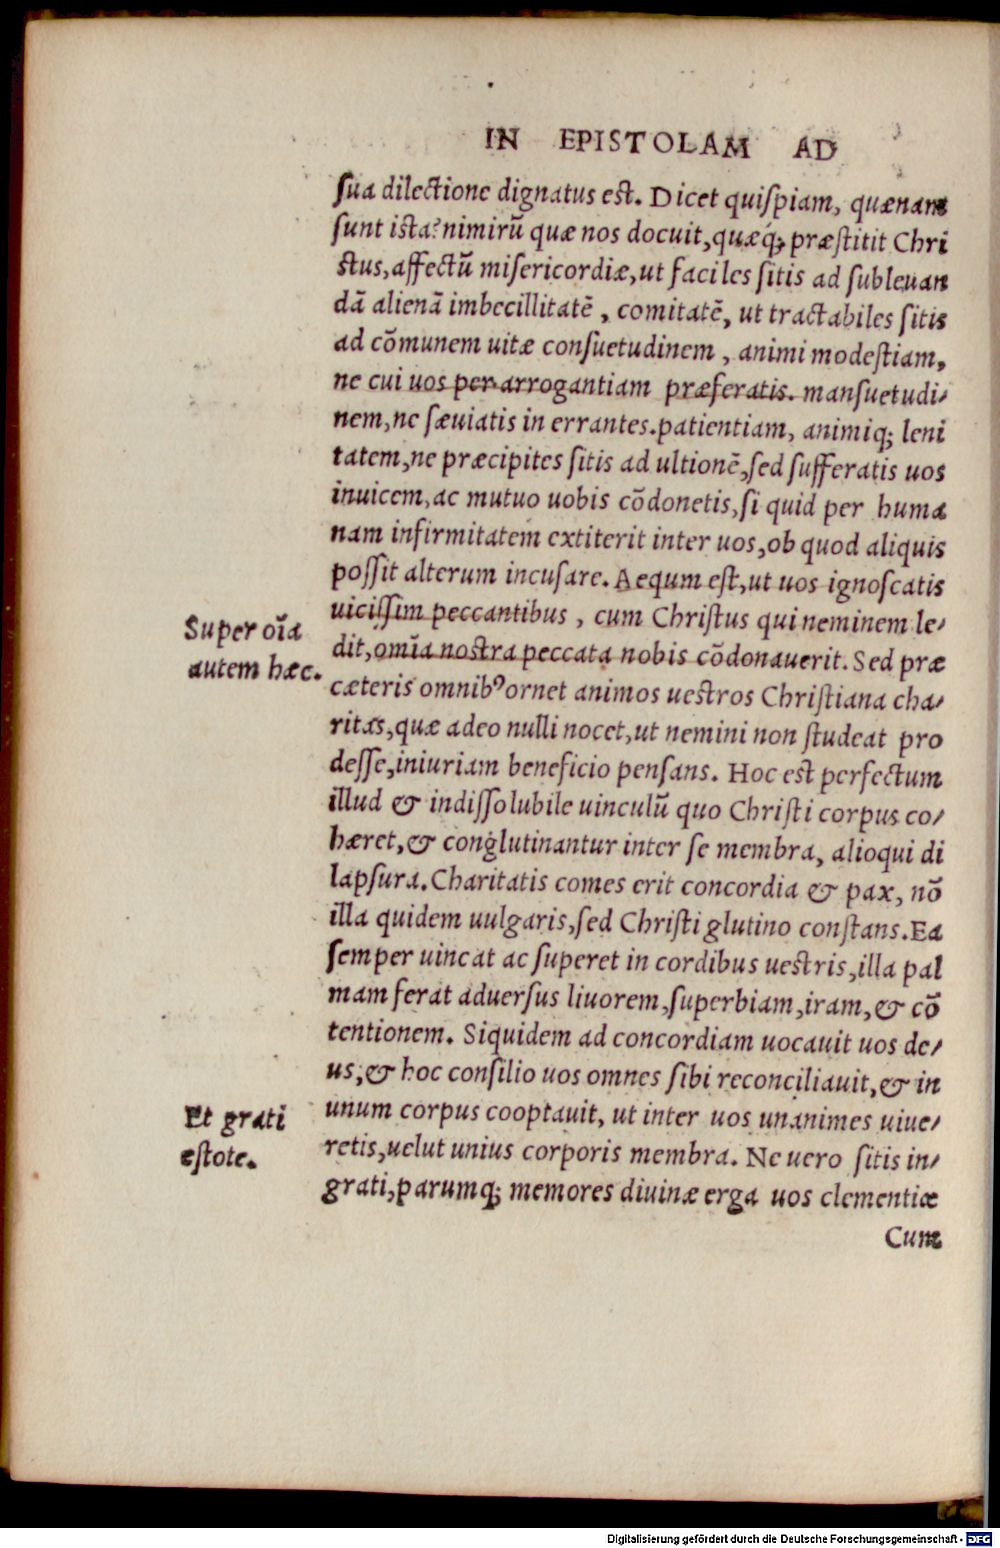 IN EPISTOLAM AD
ſua dilectione dignatus eſt. Dicet quiſpiam, quænam
ſunt iſta? nimirũ quæ nos docuit, quæq́; præſtitit Chri
ſtus, affectũ miſericordiæ, ut faciles ſitis ad ſubleuan
dã alienã imbecillitatẽ, comitatẽ, ut tractabiles ſitis
ad cõmunem uitæ conſuetudinem, animi modeſtiam,
ne cui uos per arrogantiam præferatis. manſuetudi/
nem, ne ſæuiatis in errantes. patientiam, animiq; leni
tatem, ne præcipites ſitis ad ultionẽ, ſed ſufferatis uos
inuicem, ac mutuo uobis cõdonetis, ſi quid per huma
nam infirmitatem extiterit inter uos, ob quod aliquis
poſſit alterum incuſare. Aequum eſt, ut uos ignoſcatis
uiciſſim peccantibus, cum Chriſtus qui neminem le/
dit, omĩa noſtra peccata nobis cõdonauerit. Sed præ
Super oĩa
autem hæc.
cæteris omnibꝰ ornet animos ueſtros Chriſtiana cha/
ritas, quæ adeo nulli nocet, ut nemini non ſtudeat pro
deſſe, iniuriam beneficio penſans. Hoc eſt perfectum
illud & indiſſolubile uinculũ quo Chriſti corpus co/
hæret, & conglutinantur inter ſe membra, alioqui di
lapſura. Charitatis comes erit concordia & pax, nõ
illa quidem uulgaris, ſed Chriſti glutino conſtans. Ea
ſemper uincat ac ſuperet in cordibus ueſtris, illa pal
mam ferat aduerſus liuorem, ſuperbiam, iram, & cõ
tentionem. Siquidem ad concordiam uocauit uos de/
us, & hoc conſilio uos omnes ſibi reconciliauit, & in
unum corpus cooptauit, ut inter uos unanimes uiue/
Et grati
eſtote.
retis, uelut unius corporis membra. Ne uero ſitis in/
grati, parumq; memores diuinæ erga uos clementiæ
Cum
Digitalisierung gefördert durch die Deutsche Forschungsgemeinschaft - DFG